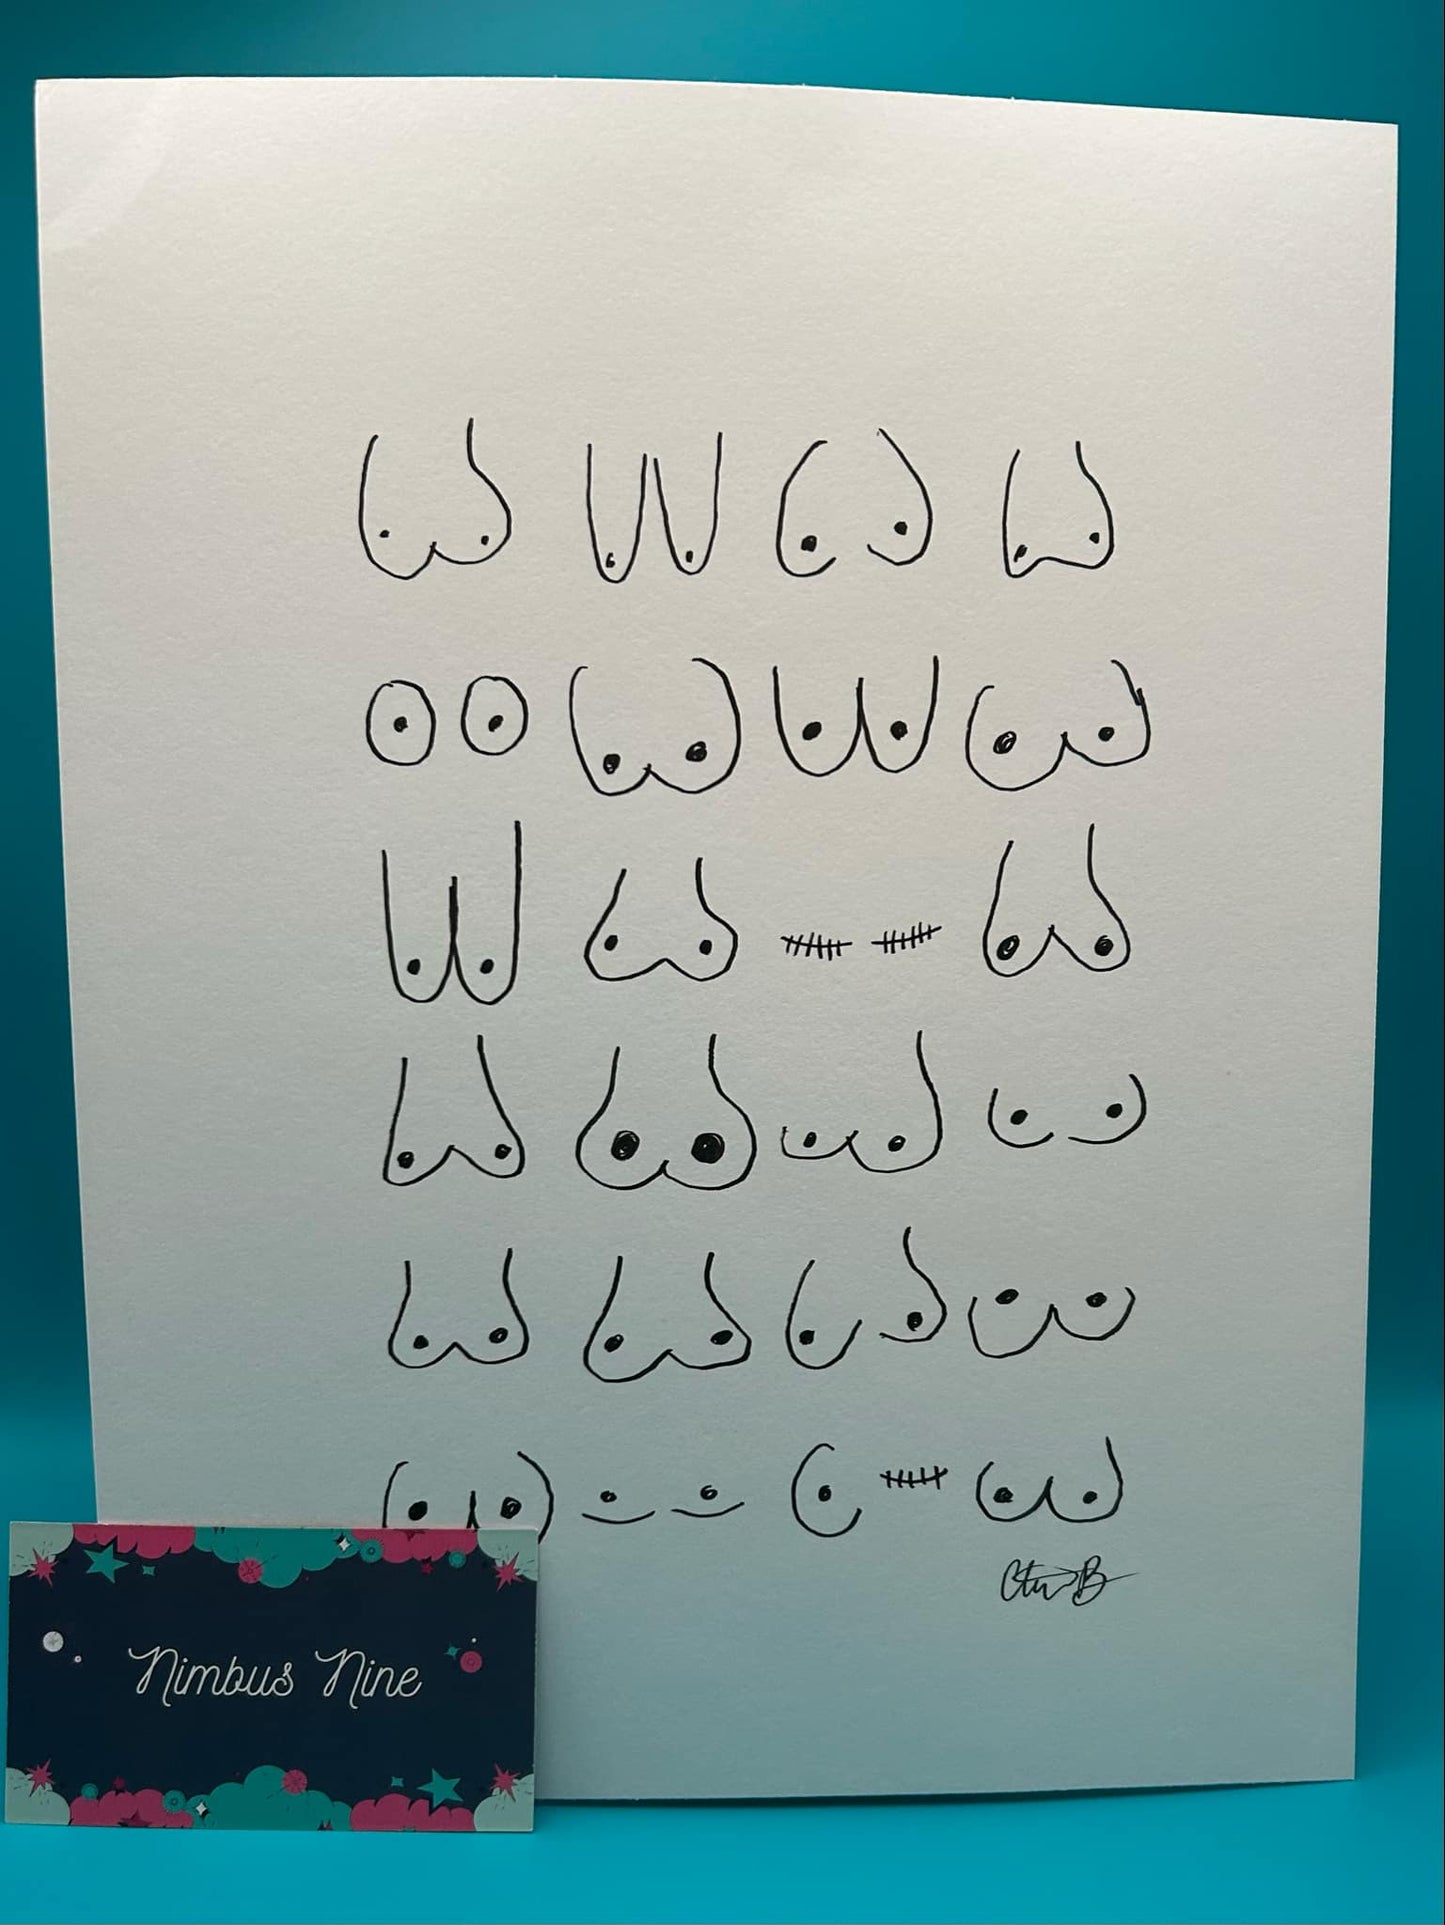 Nimbus Nine